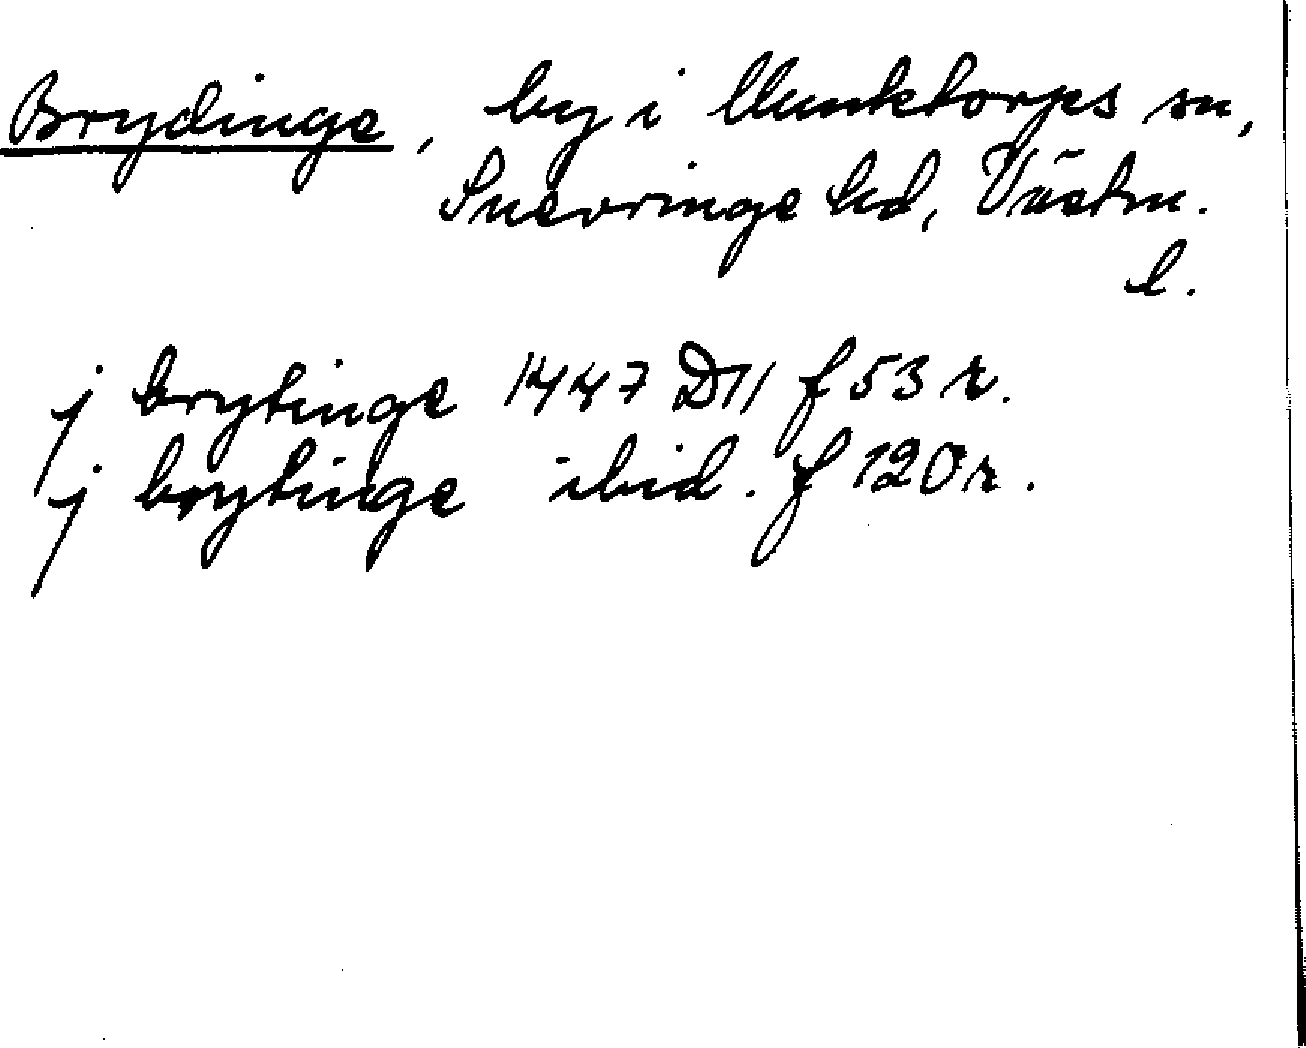 Brydinge, by i Munktorps sn,
Snevringe hd, Västm.
l.
j brytinge 1447 D11 f 53 r.
j brytinge ibid. f 120 r.